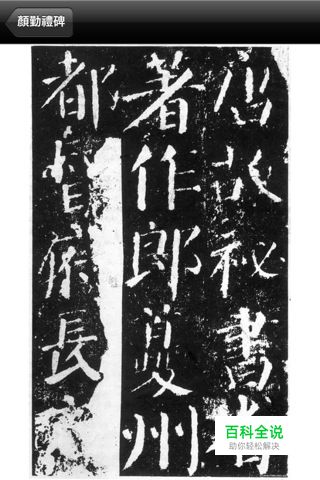 顏勤禮碑
唐故祕書省
著作郎夔州
都督府長
百科全说
助你轻松解决